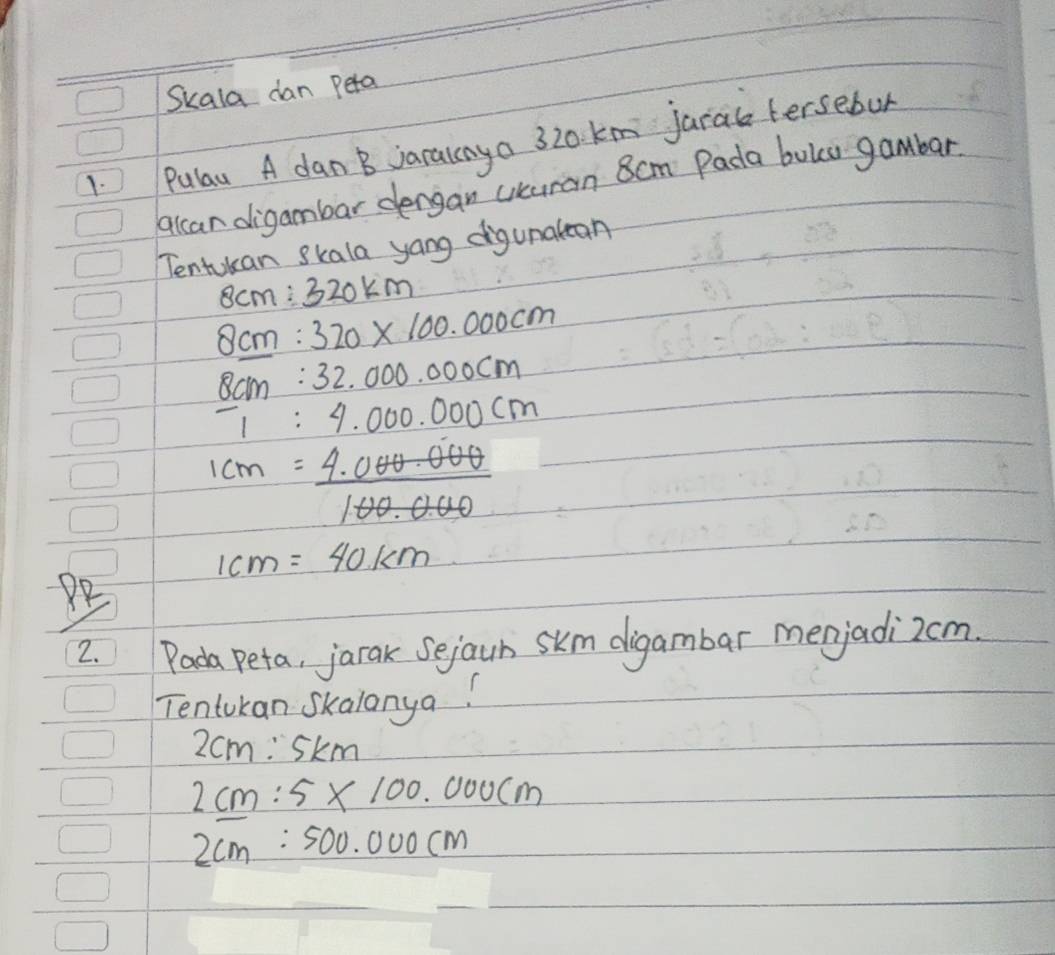 Skala dan Peta
1. Pulau A dan B jaraknya 320 km jarak tersebut
akan digambar dengan ukuran 8cm Pada buku gambar.
Tentukan skala yang digunakan
8cm : 320km
8cm : 320 X 100.000cm
8cm : 32.000.000cm
1 : 4.000.000 cm
1cm = 4.000.000
100.000
1cm = 40 km
PR
2. Pada peta, jarak sejauh 5km digambar menjadi 2cm.
Tentukan skalanya !
2cm : 5km
2cm : 5 X 100.000cm
2cm : 500.000cm